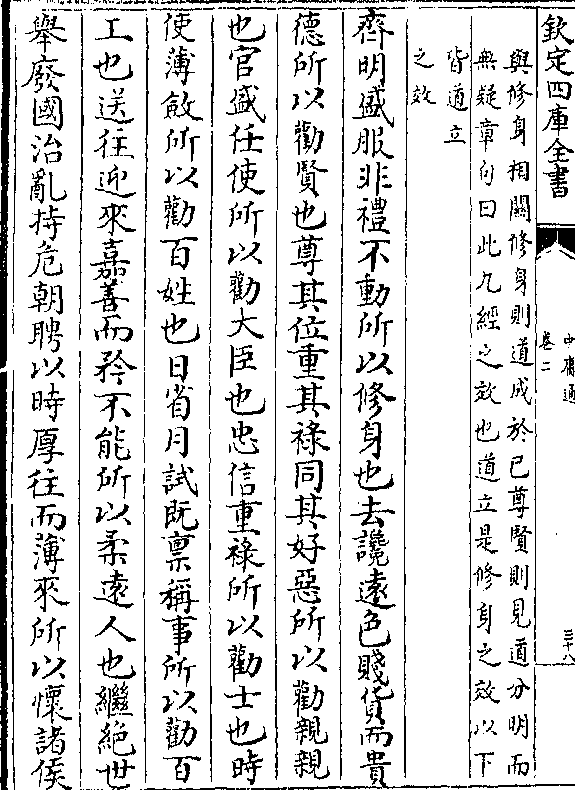 欽定四庫全書
中庸通
卷二
三十八
與修身相關修身則道成於已尊賢則見道分明而
無疑章句曰此九經之效也道立是修身之效以下
皆道立
之效
齊明盛服非禮不動所以修身也去讒遠色賤貨而貴
德所以勸賢也尊其位重其祿同其好惡所以勸親親
也官盛任使所以勸大臣也忠信重祿所以勸士也時
使薄斂所以勸百姓也日省月試既稟稱事所以勸百
工也送往迎來嘉善而矜不能所以柔遠人也繼絕世
舉廢國治亂持危朝聘以時厚往而薄來所以懷諸侯